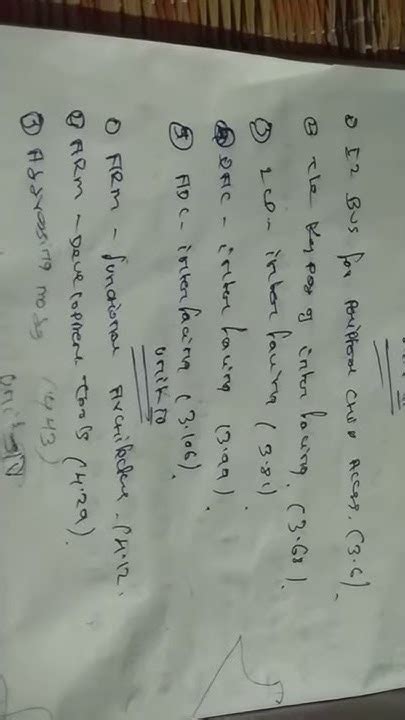 ① I2 Bus for peripheral chip Access. (3.6).
② The keypad g interfacing. (3.68).
③ LCD - interfacing (3.81)
④ DAC - interfacing (3.99).
⑤ ADC - interfacing (3.106).
unit IV
① ARM - functional Architecture - (4.12.
② ARM - Development Tools (4.29).
③ Addressing modes (4.43)